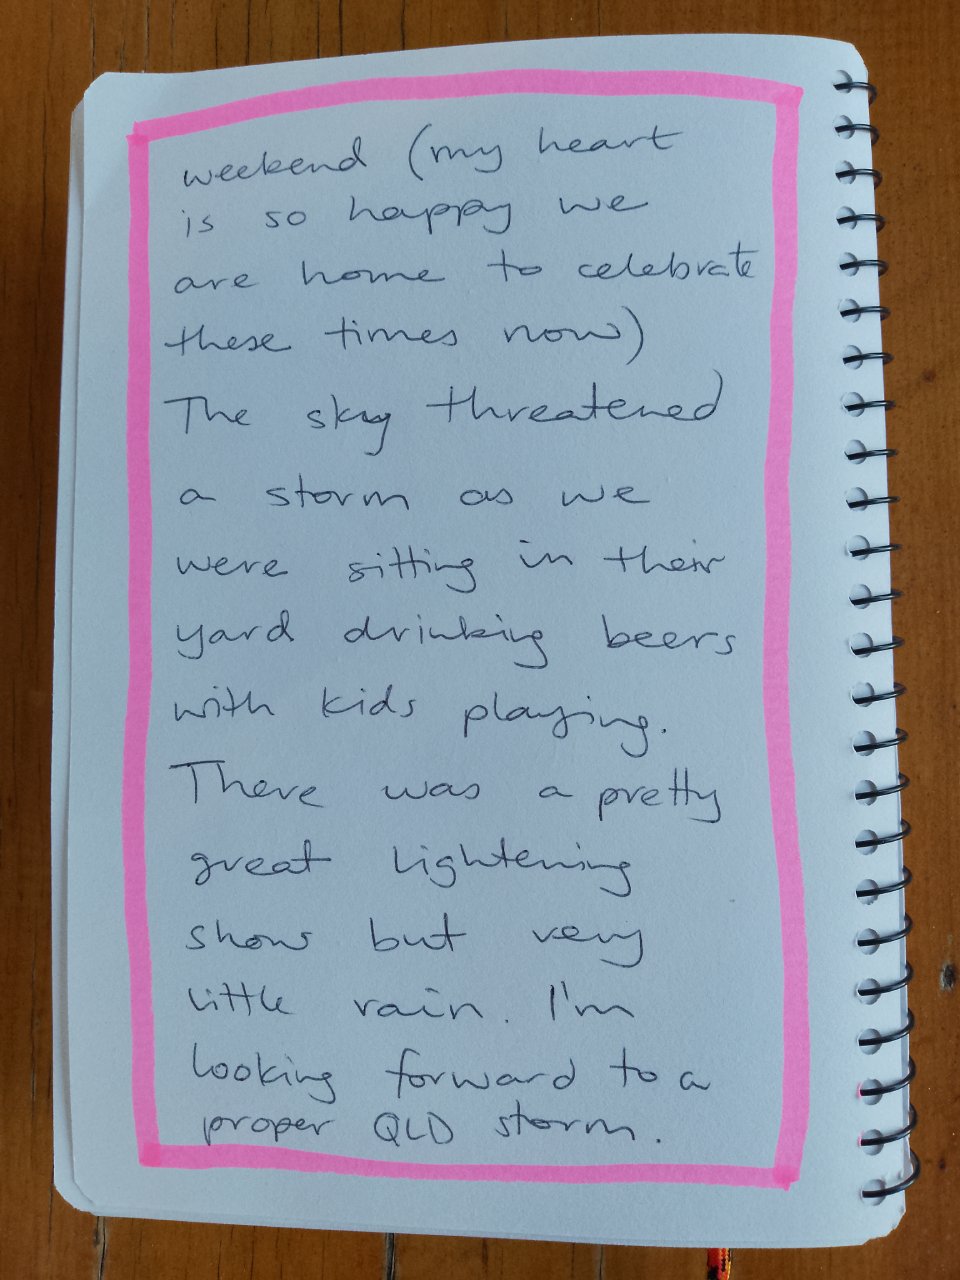 weekend (my heart
is so happy we
are home to celebrate
these times now)
The sky threatened
a storm as we
were sitting in their
yard drinking beers
with kids playing.
There was a pretty
great lightening
show but very
little rain. I'm
looking forward to a
proper QLD storm.